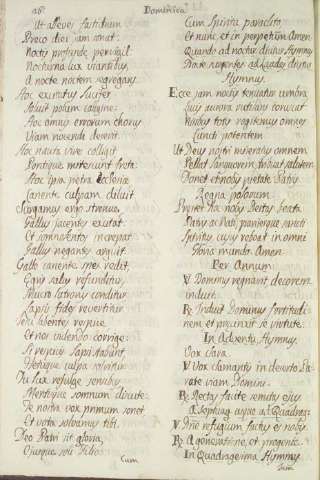 26
Dominica
Ut alleves fastidium
Preco diei jam sonat.
Noctis profunde pervigil
Nocturna lux viantibus,
A nocte noctem segregans
Hoc excitatus Lucifer
Solvit polum caligine:
Hoc omnis errorum chorus
Viam nocendi deserit.
Hoc nauta vires colligit
Pontique mitescunt freta:
Hoc ipsa petra Ecclesiæ
Canente culpam diluit
Surgamus ergo strenue,
Gallus jacentes excitat
Et somnolentos increpat
Gallus negantes arguit
Gallo canente spes redit,
Egris salus refunditur,
Mucro latronis conditur
Lapsis fides revertitur
Jesu labentes respice
Et nos videndo corrige:
Si respicis lapsi stabunt
Fletuque culpa solvitur
Tu lux refulge sensibus
Mentisque somnum discute:
Te nostra vox primum sonet
Et vota solvamus tibi.
Deo Patri sit gloria,
Ejusque soli Filio
Cum
Cum Spiritu paraclito
Et nunc et in perpetuum Amen
Quando ad noctur. divus Hymnus
Dicte sequentes ad Laudes
Hymnus.
Ecce jam noctis tenuatur umbra
Lux aurora rutilans coruscat
Nisibus totis rogitemus omnes
Cuncti potentem
Ut Deus nostri miseratus omnem
Pellat languorem, tribuat salutem
Donet et nobis pietate Patris
Regna polorum.
Prestet hoc nobis Deitas beata
Patris ac Nati, pariterque sancti
Spiritus cujus resonat in omni
Gloria mundo Amen
Per Annum
V Dominus regnavit decorem
induit.
R Induit Dominus fortitudi-
nem et precinxit se virtute.
In Adventu Hymnus.
Vox clara.
V Vox clamantis in deserto Pa-
rate viam Domini.
R Rectas facite semitas ejus
A Septuag. usque ad Quadrag:
V Dne refugium factus es nobis.
R A generatione, et progenie.
In Quadragesima Hymnus